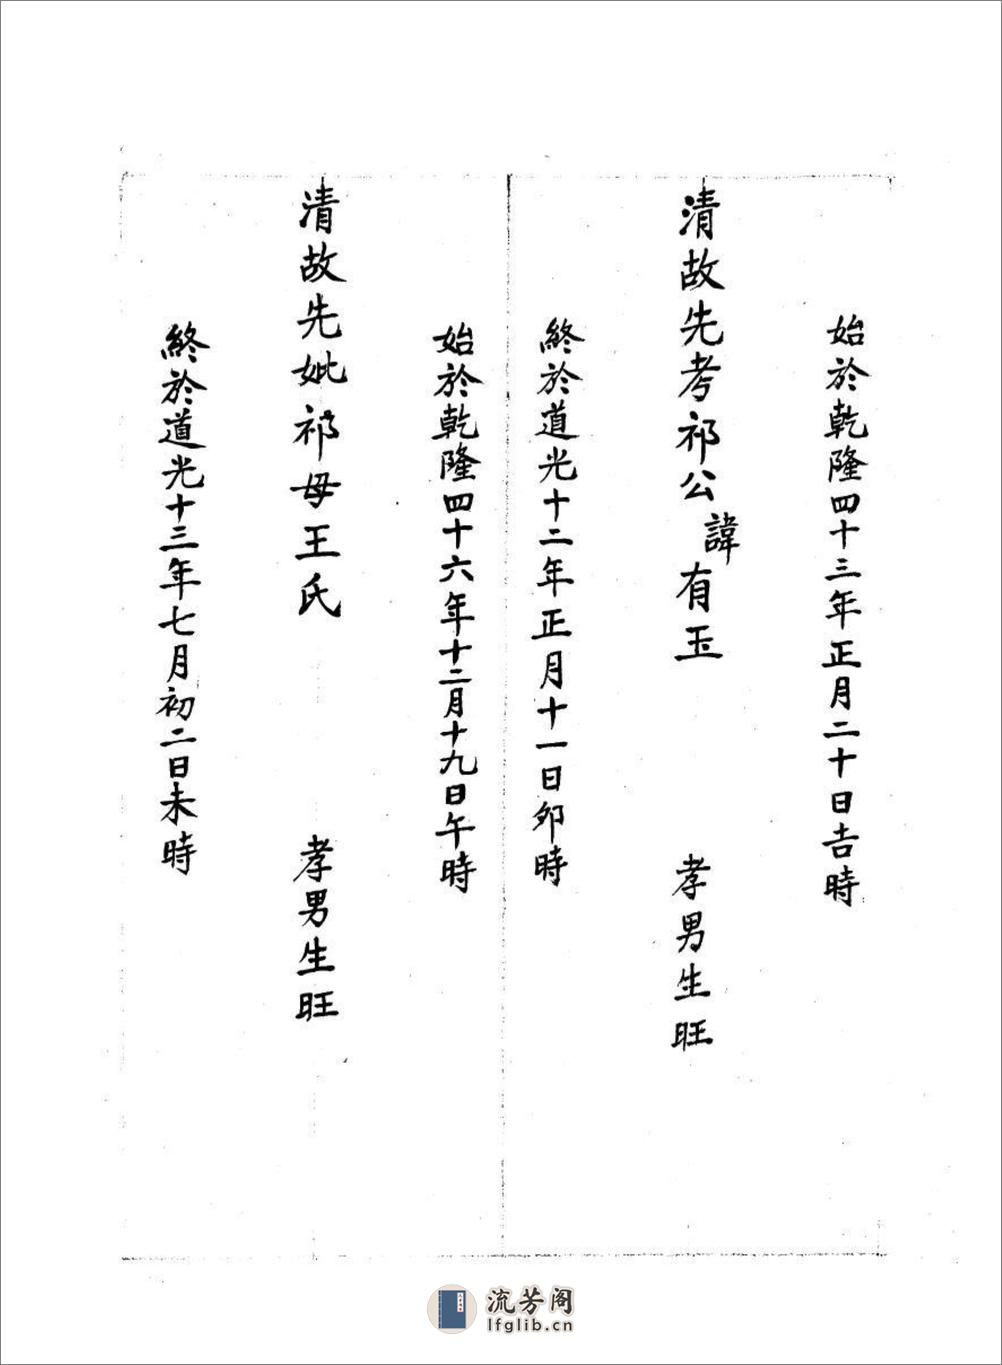 始於乾隆四十三年正月二十日吉時
清故先考祁公諱有玉
孝男生旺
終於道光十二年正月十一日卯時
始於乾隆四十六年十二月十九日午時
清故先妣祁母王氏
孝男生旺
終於道光十三年七月初二日未時
流芳阁
lfglib.cn